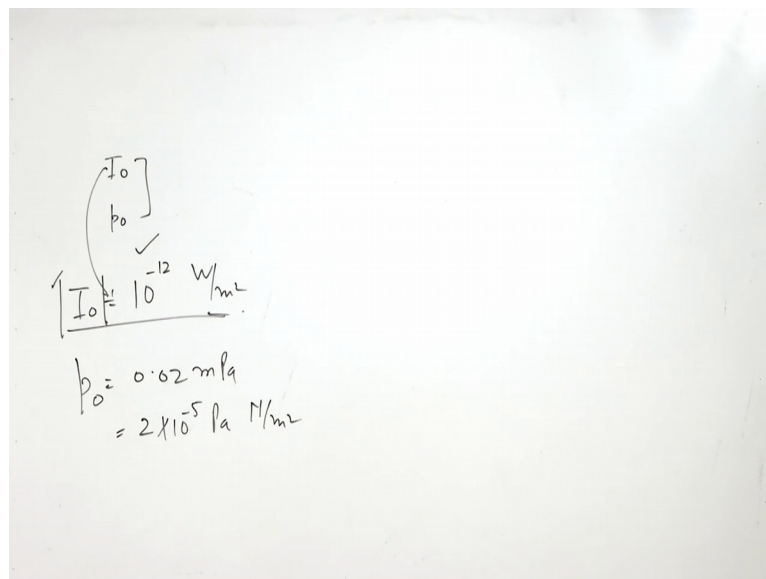 I₀
p₀
✓
I₀ = 10⁻¹² W/m²
p₀ = 0.02 mPa
= 2×10⁻⁵ Pa N/m²